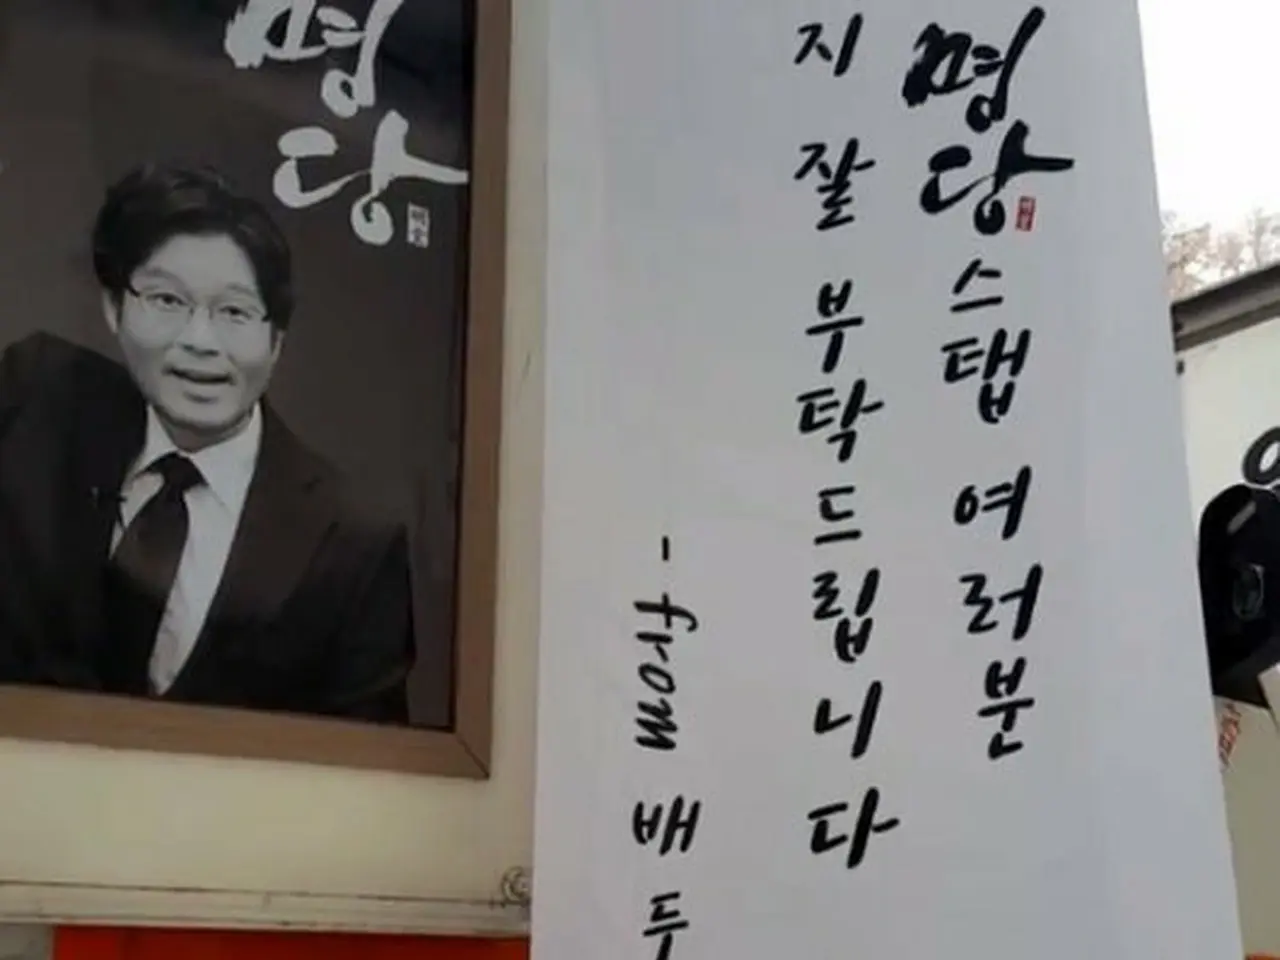 명당
명당 스탭 여러분
지 잘 부탁드립니다
- from 배두